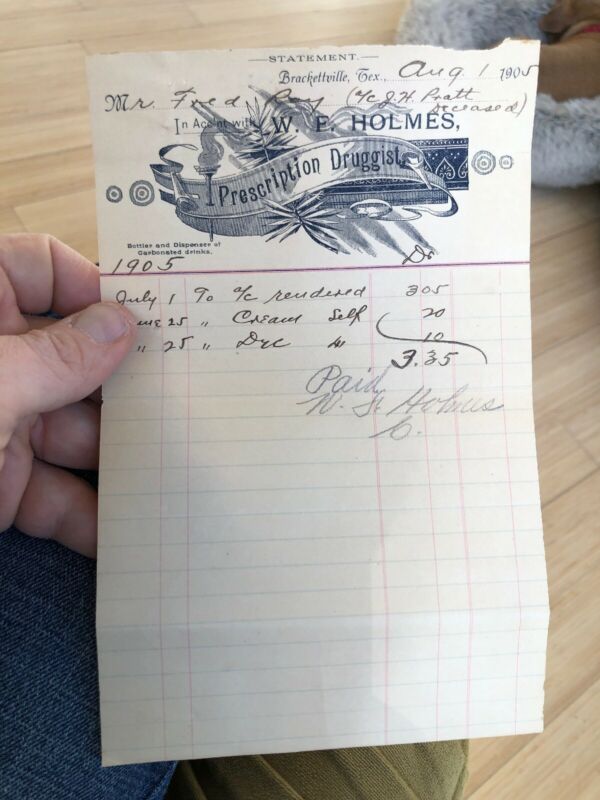 STATEMENT.
Brackettville, Tex., Aug 1 1905
Mr. Fred Ray (a/c J. H. Pratt deceased)
In Acco't with W. E. HOLMES,
Prescription Druggist.
Bottler and Dispenser of
Carbonated drinks.
1905 Dr
July 1 To a/c rendered 305
25 " Cream Self 20
" 25 " " 10
3.35
Paid
Holmes